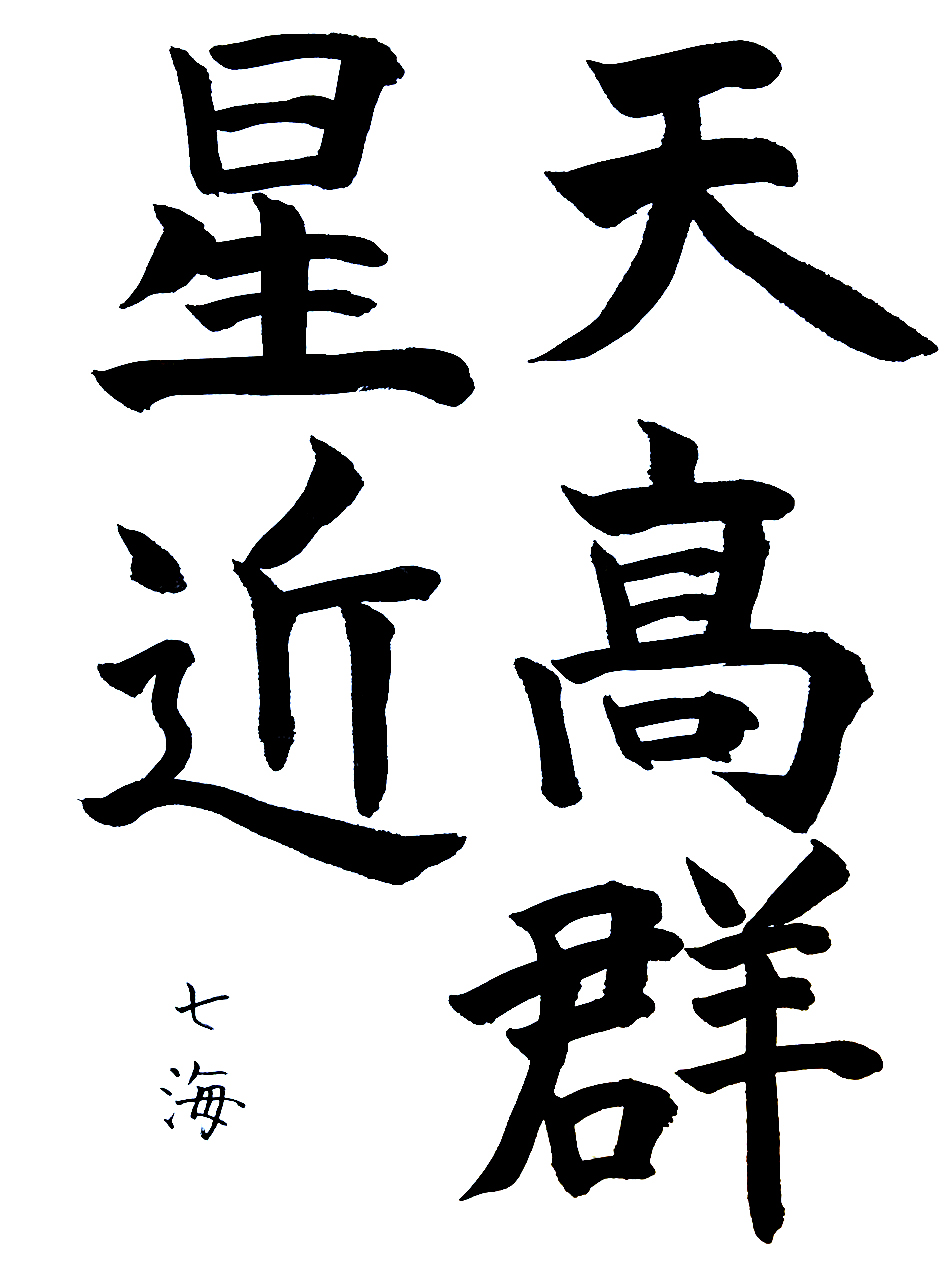 天髙群
星近
七海